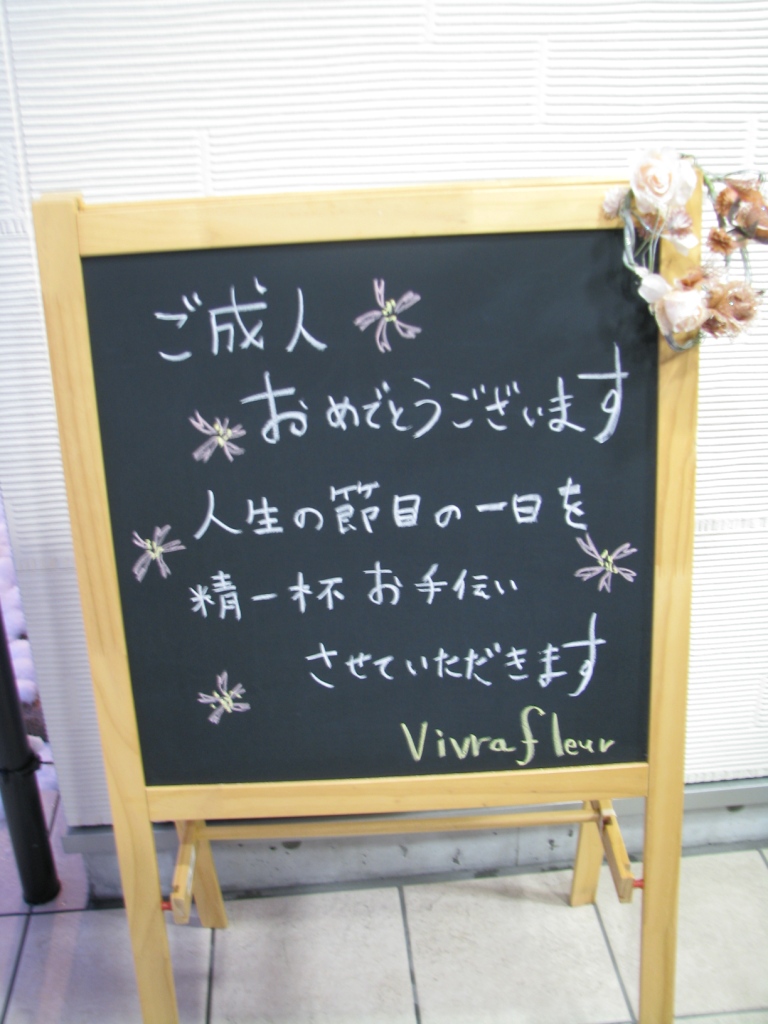 ご成人
おめでとうございます
人生の節目の一日を
精一杯お手伝い
させていただきます
Vivrafleur